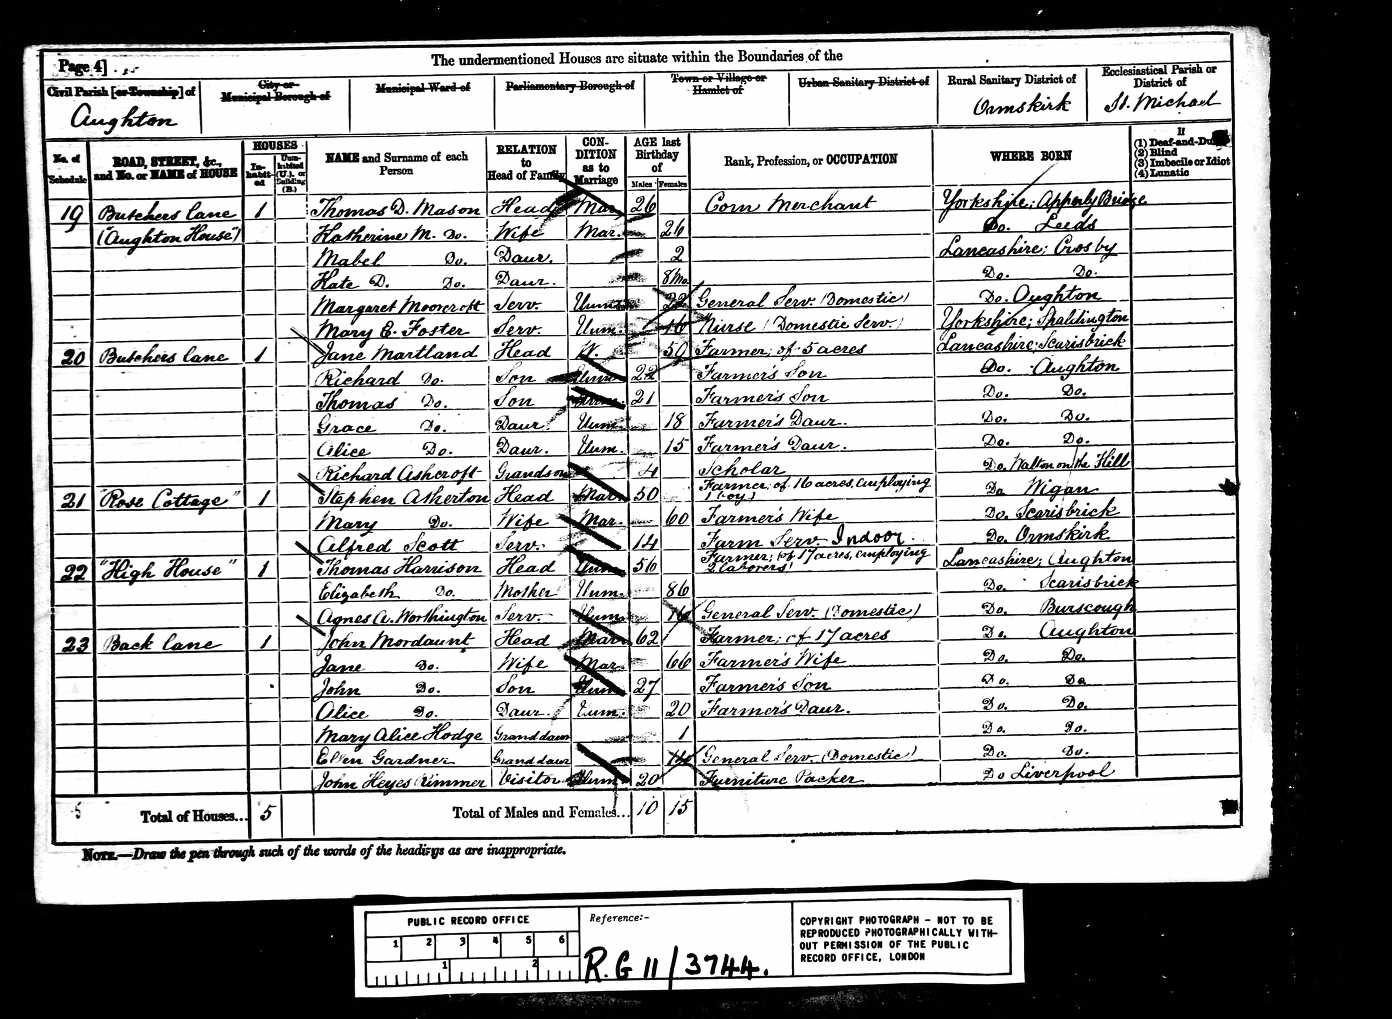 The undermentioned Houses are situate within the Boundaries of the
Page 4]
Civil Parish [or Township] of
Aughton
City or Municipal Borough of
Municipal Ward of
Parliamentary Borough of
Town or Village or Hamlet of
Urban Sanitary District of
Rural Sanitary District of
Ormskirk
Ecclesiastical Parish or District of
St. Michael
No. of Schedule
ROAD, STREET, &c., and No. or NAME of HOUSE
HOUSES
In-habit-ed
Unin-habited (U.), or Building (B.)
NAME and Surname of each Person
RELATION to Head of Family
CON-DITION as to Marriage
AGE last Birthday of
Males Females
Rank, Profession, or OCCUPATION
WHERE BORN
If
(1) Deaf-and-Dumb
(2) Blind
(3) Imbecile or Idiot
(4) Lunatic
19 Butchers Lane 1 Thomas D. Mason Head Mar. 26 Corn Merchant Yorkshire; Apperly Bridge
("Aughton House") Katherine M. Do. Wife Mar. 26 Do. Leeds
Mabel Do. Daur. 2 Lancashire; Crosby
Kate D. Do. Daur. 8 Mo. Do. Do.
Margaret Moorcroft Serv. Unm. 22 General Serv. (Domestic) Do. Aughton
Mary E. Foster Serv. Unm. 16 Nurse (Domestic Serv.) Yorkshire; Spaldington
20 Butchers Lane 1 Jane Martland Head W. 50 Farmer; of 5 acres Lancashire; Scarisbrick
Richard Do. Son Unm. 22 Farmer's Son Do. Aughton
Thomas Do. Son Unm. 21 Farmer's Son Do. Do.
Grace Do. Daur. Unm. 18 Farmer's Daur. Do. Do.
Alice Do. Daur. Unm. 15 Farmer's Daur. Do. Do.
Richard Ashcroft Grandson 4 Scholar Do. Walton on the Hill
21 "Rose Cottage" 1 Stephen Atherton Head Mar. 50 Farmer; of 16 acres, employing 1 boy) Do. Wigan
Mary Do. Wife Mar. 60 Farmer's Wife Do. Scarisbrick
Alfred Scott Serv. 14 Farm Serv. Indoor Do. Ormskirk
22 "High House" 1 Thomas Harrison Head Unm. 56 Farmer; (of 17 acres, employing 2 laborers) Lancashire; Aughton
Elizabeth Do. Mother Unm. 86 Do. Scarisbrick
Agnes A. Worthington Serv. Unm. 16 General Serv. (Domestic) Do. Burscough
23 Back Lane 1 John Mordaunt Head Mar. 62 Farmer; of 17 acres Do. Aughton
Jane Do. Wife Mar. 66 Farmer's Wife Do. Do.
John Do. Son Unm. 27 Farmer's Son Do. Do.
Alice Do. Daur. Unm. 20 Farmer's Daur. Do. Do.
Mary Alice Hodge Grand daur 1 Do. Do.
Ellen Gardner Grand daur 14 General Serv. (Domestic) Do. Do.
John Heyes Rimmer Visitor Unm. 20 Furniture Packer Do Liverpool
5 Total of Houses... 5 Total of Males and Females... 10 15
NOTE.—Draw the pen through such of the words of the headings as are inappropriate.
PUBLIC RECORD OFFICE
1 2 3 4 5 6
1 2
Reference:-
R.G 11/3744.
COPYRIGHT PHOTOGRAPH - NOT TO BE
REPRODUCED PHOTOGRAPHICALLY WITH-
OUT PERMISSION OF THE PUBLIC
RECORD OFFICE, LONDON